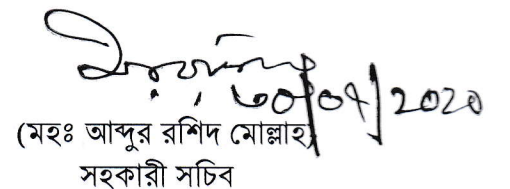 ৩০/০৭/2020
(মহঃ আব্দুর রশিদ মোল্লাহ)
সহকারী সচিব